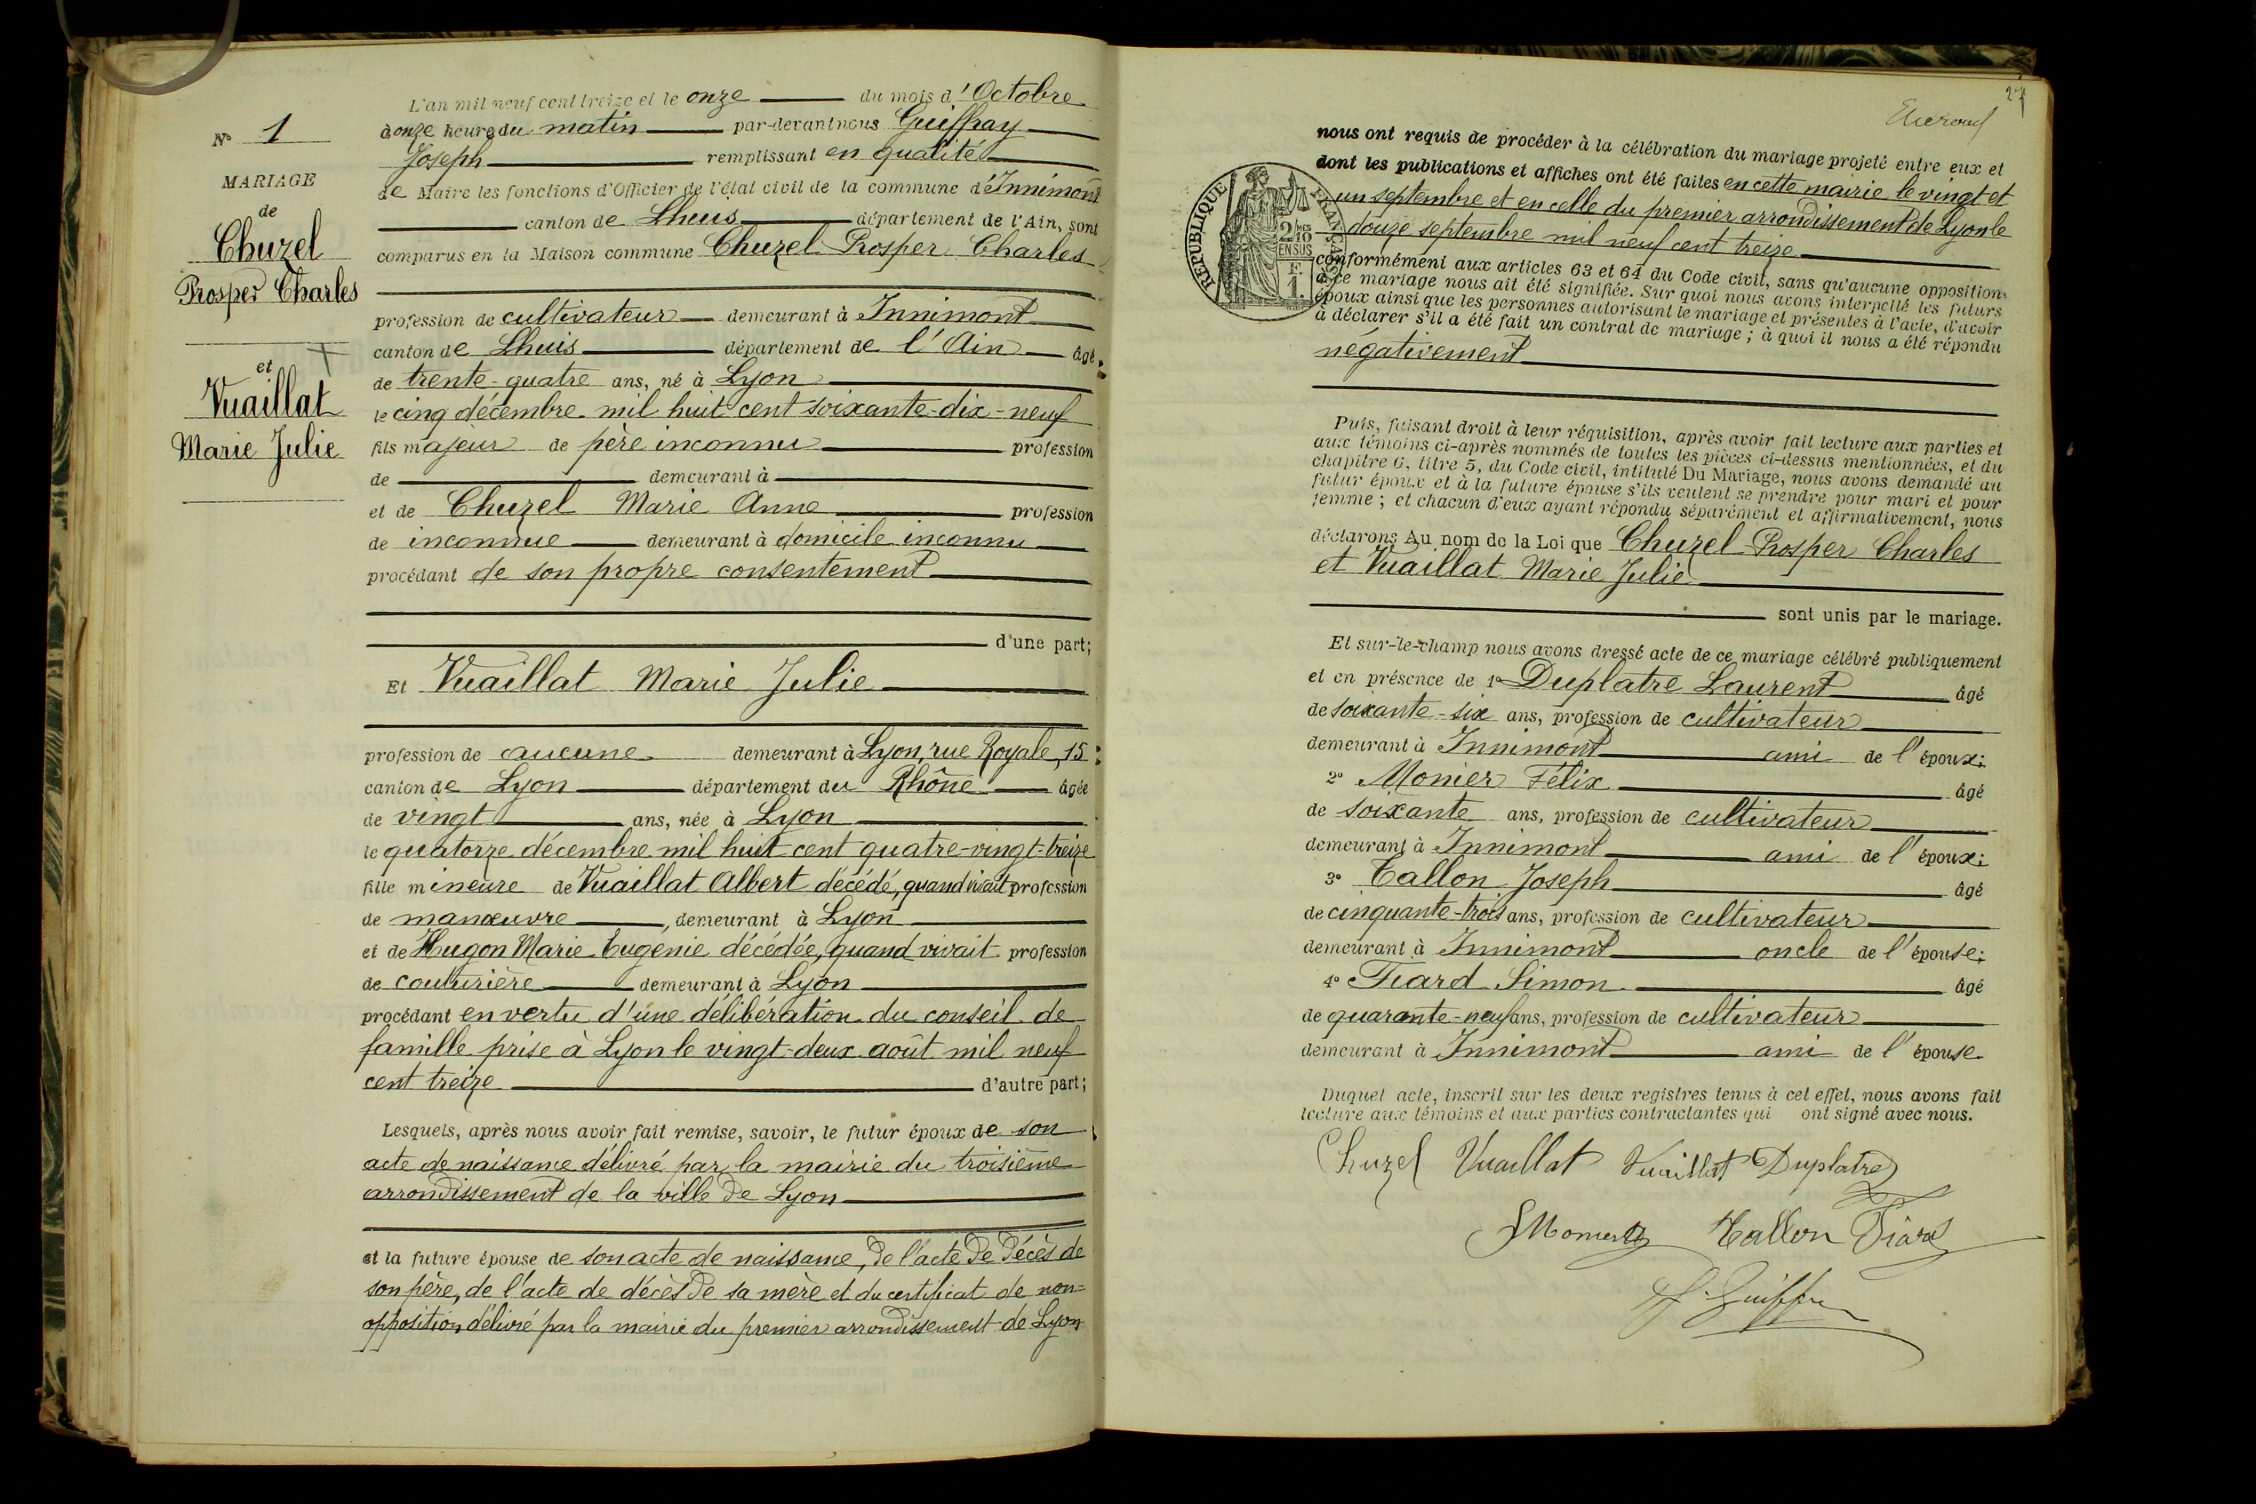 N° 1
MARIAGE
de
Chuzel
Prosper Charles
et
Vuaillat
Marie Julie
L'an mil neuf cent treize et le onze du mois d'Octobre
à onze heures du matin par-devant nous Guiffray
Joseph remplissant en qualité
de Maire les fonctions d'Officier de l'état civil de la commune d'Innimont
canton de Lhuis département de l'Ain, sont
comparus en la Maison commune Chuzel Prosper Charles
profession de cultivateur demeurant à Innimont
canton de Lhuis département de l'Ain âgé
de trente-quatre ans, né à Lyon
le cinq décembre mil huit cent soixante-dix-neuf
fils majeur de père inconnu profession
de demeurant à
et de Chuzel Marie Anne profession
de inconnue demeurant à domicile inconnu
procédant de son propre consentement
d'une part;
Et Vuaillat Marie Julie
profession de aucune demeurant à Lyon, rue Royale, 15
canton de Lyon département du Rhône âgée
de vingt ans, née à Lyon
le quatorze décembre mil huit cent quatre-vingt-treize
fille mineure de Vuaillat Albert décédé, quand vivait profession
de manœuvre, demeurant à Lyon
et de Hugon Marie Eugenie décédée, quand vivait profession
de couturière demeurant à Lyon
procédant en vertu d'une délibération du conseil de
famille prise à Lyon le vingt-deux août mil neuf
cent treize d'autre part;
Lesquels, après nous avoir fait remise, savoir, le futur époux de son
acte de naissance délivré par la mairie du troisième
arrondissement de la ville de Lyon
et la future épouse de son acte de naissance, de l'acte de décès de
son père, de l'acte de décès de sa mère et du certificat de non-
opposition délivré par la mairie du premier arrondissement de Lyon
27
nous ont requis de procéder à la célébration du mariage projeté entre eux et
dont les publications et affiches ont été faites en cette mairie le vingt et
un septembre et en celle du premier arrondissement de Lyon le
douze septembre mil neuf cent treize
RÉPUBLIQUE FRANÇAISE
2/10
EN SUS
F.
1.
conformément aux articles 63 et 64 du Code civil, sans qu'aucune opposition
à ce mariage nous ait été signifiée. Sur quoi nous avons interpellé les futurs
époux ainsi que les personnes autorisant le mariage et présentes à l'acte, d'avoir
à déclarer s'il a été fait un contrat de mariage; à quoi il nous a été répondu
négativement
Puis, faisant droit à leur réquisition, après avoir fait lecture aux parties et
aux témoins ci-après nommés de toutes les pièces ci-dessus mentionnées, et du
chapitre 6, titre 5, du Code civil, intitulé Du Mariage, nous avons demandé au
futur époux et à la future épouse s'ils veulent se prendre pour mari et pour
femme; et chacun d'eux ayant répondu séparément et affirmativement, nous
déclarons Au nom de la Loi que Chuzel Prosper Charles
et Vuaillat Marie Julie
sont unis par le mariage.
Et sur-le-champ nous avons dressé acte de ce mariage célébré publiquement
et en présence de 1° Duplatre Laurent âgé
de soixante-six ans, profession de cultivateur
demeurant à Innimont ami de l'époux;
2° Monier Félix âgé
de soixante ans, profession de cultivateur
demeurant à Innimont ami de l'époux;
3° Tallon Joseph âgé
de cinquante-trois ans, profession de cultivateur
demeurant à Innimont oncle de l'épouse;
4° Fiard Simon âgé
de quarante-neuf ans, profession de cultivateur
demeurant à Innimont ami de l'épouse
Duquel acte, inscrit sur les deux registres tenus à cet effet, nous avons fait
lecture aux témoins et aux parties contractantes qui ont signé avec nous.
Chuzel Vuaillat Vuaillat Duplatre
Tallon Fiard